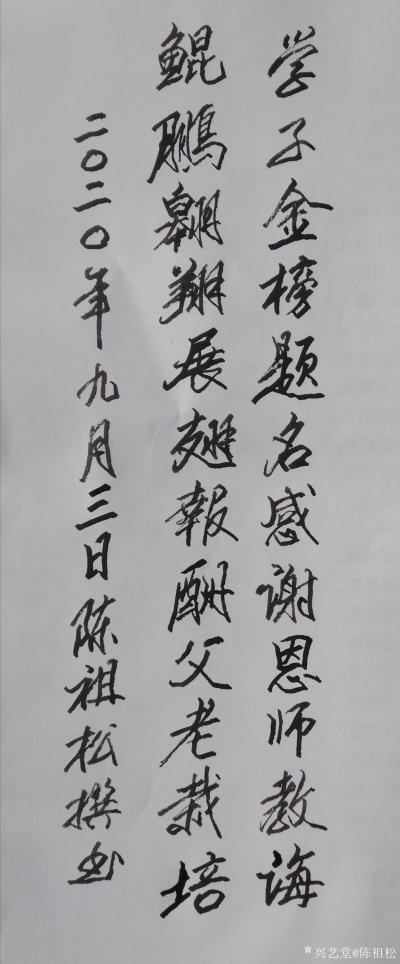 学子金榜题名感谢恩师教诲
鲲鹏翱翔展翅報酬父老栽培
二〇二〇年九月三日陈祖松撰书
兴艺堂@陈祖松